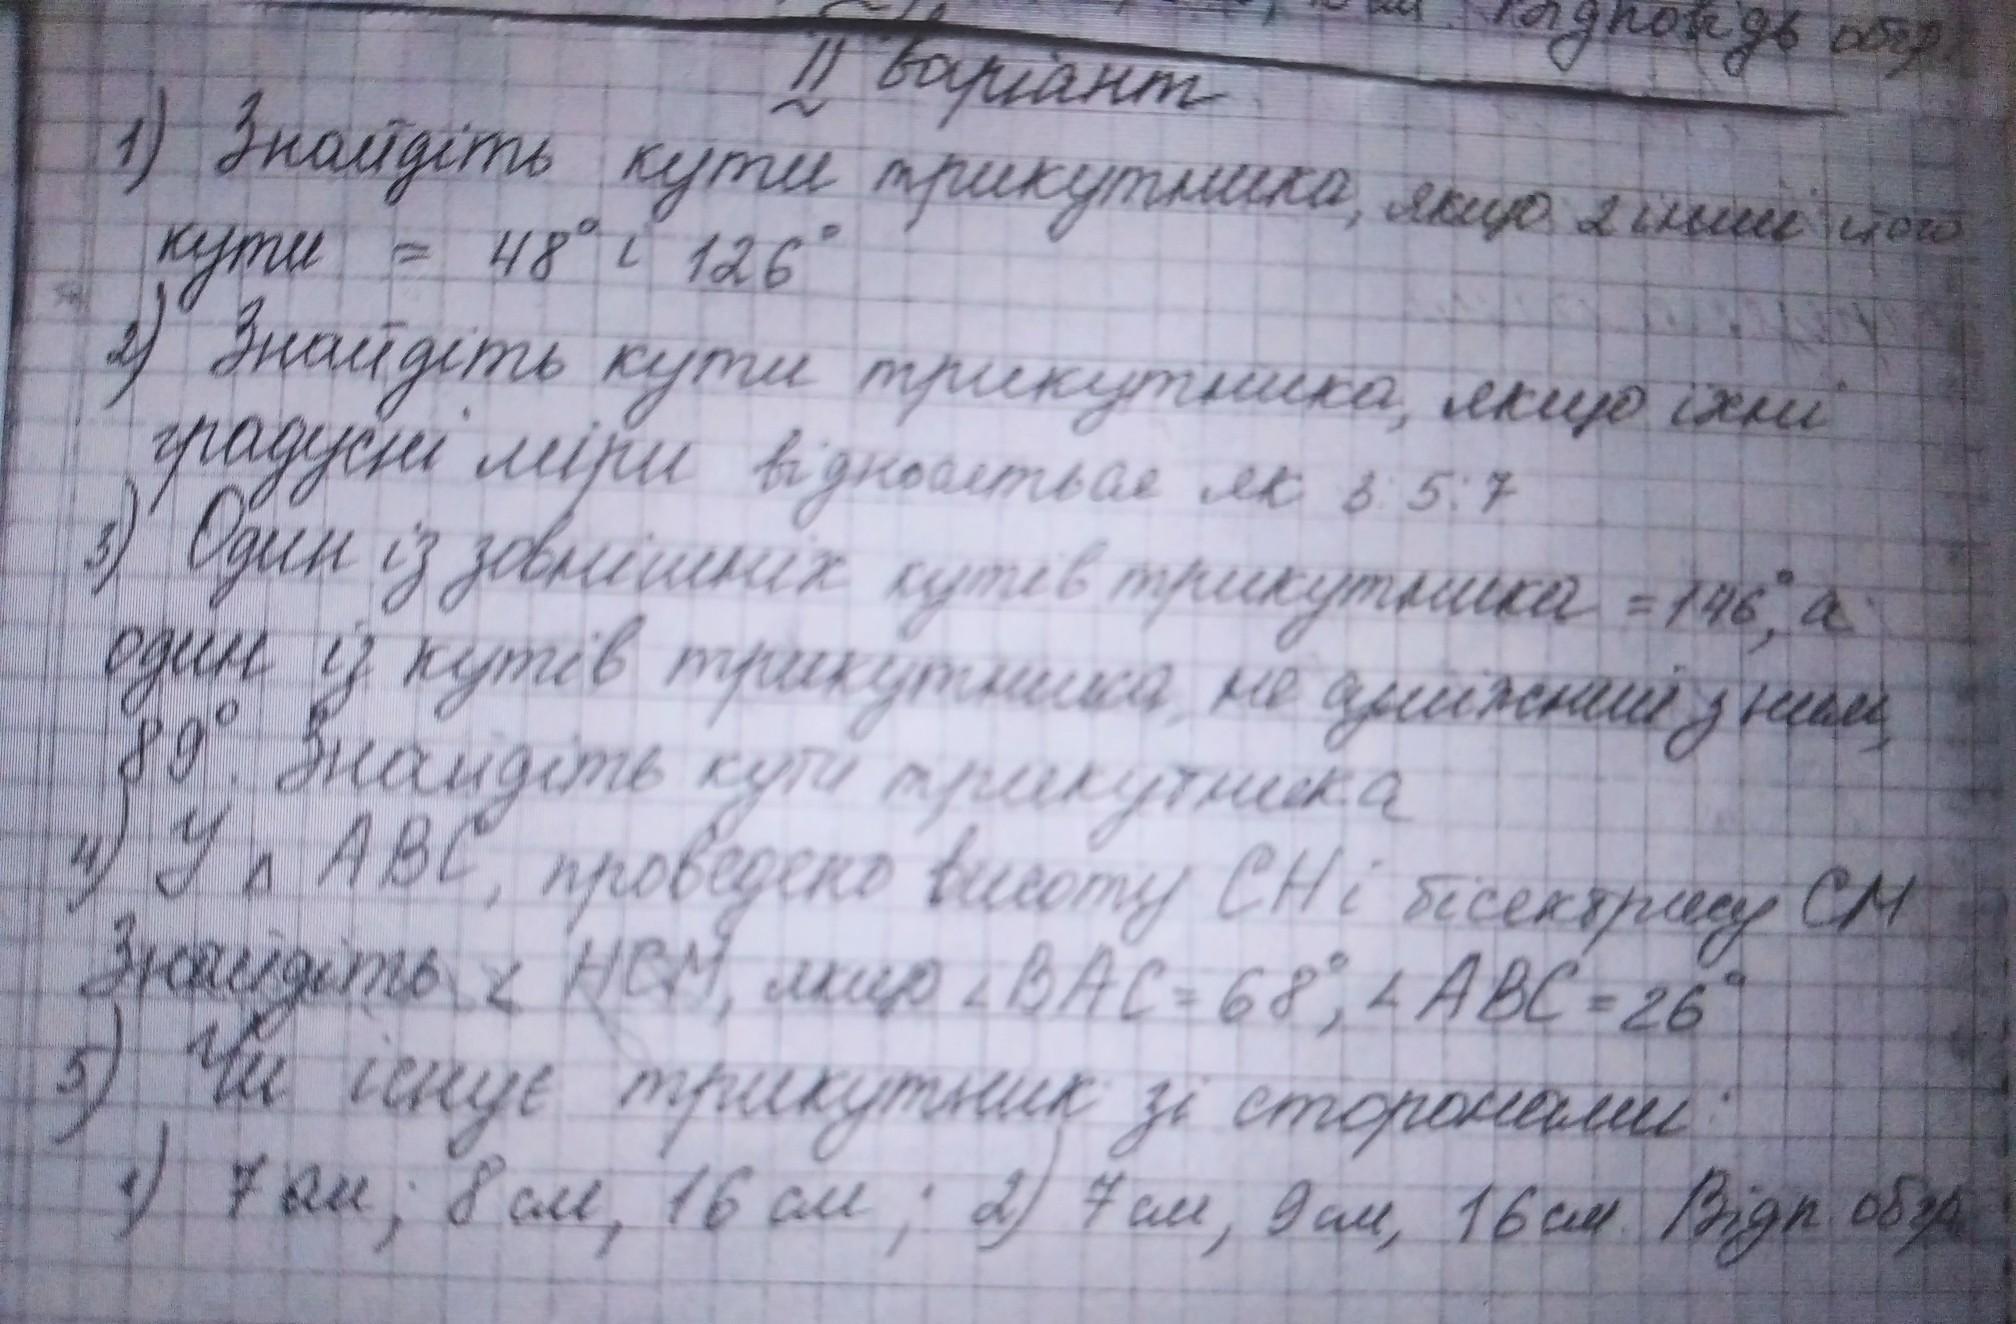 Відповідь обгр.
II варіант
1) Знайдіть кути трикутника, якщо 2 інші його
кути = 48° і 126°
2) Знайдіть кути трикутника, якщо їхні
градусні міри відносяться як 3:5:7
3) Один із зовнішніх кутів трикутника = 146°, а
один із кутів трикутника, не суміжний з ним,
89°. Знайдіть кути трикутника
4) У △ ABC, проведено висоту CH і бісектрису CM
Знайдіть < HCM, якщо ∠BAC = 68°, ∠ABC = 26°
5) Чи існує трикутник зі сторонами:
1) 7 см; 8 см, 16 см; 2) 7 см, 9 см, 16 см. Відп. обгр.